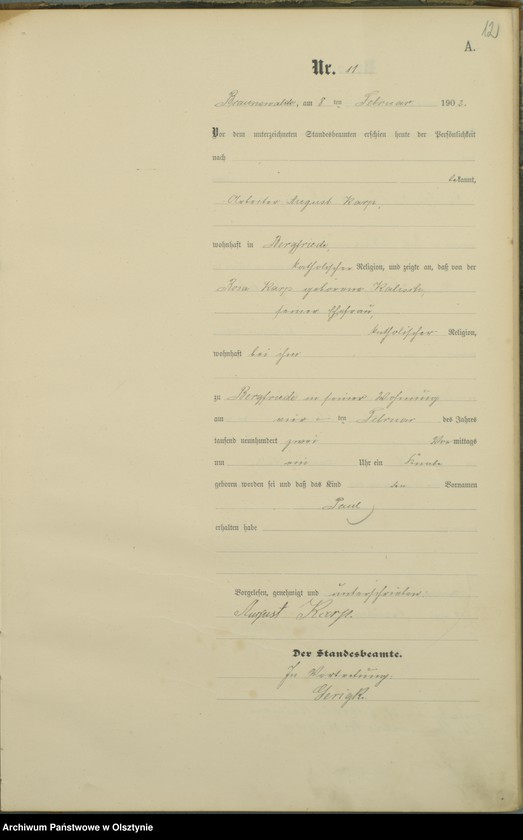 12
A.
Nr. 11
am 8 ten Februar 1902.
Vor dem unterzeichneten Standesbeamten erschien heute der Persönlichkeit
nach
bekannt,
Arbeiter August Karp,
wohnhaft in Bergfriede,
katholischer Religion, und zeigte an, daß von der
Rosa Karp geborene
seiner Ehefrau,
katholischer Religion,
wohnhaft bei ihm
zu Bergfriede in seiner Wohnung
am vier ten Februar des Jahres
tausend neunhundert zwei Vor mittags
um ein Uhr ein Knabe
geboren worden sei und daß das Kind den Vornamen
Paul
erhalten habe
Vorgelesen, genehmigt und unterschrieben.
August Karp.
Der Standesbeamte.
In Vertretung.
Gerigk.
Archiwum Państwowe w Olsztynie